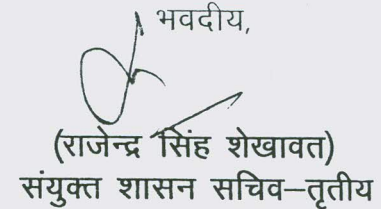 भवदीय,
(राजेन्द्र सिंह शेखावत)
संयुक्त शासन सचिव–तृतीय